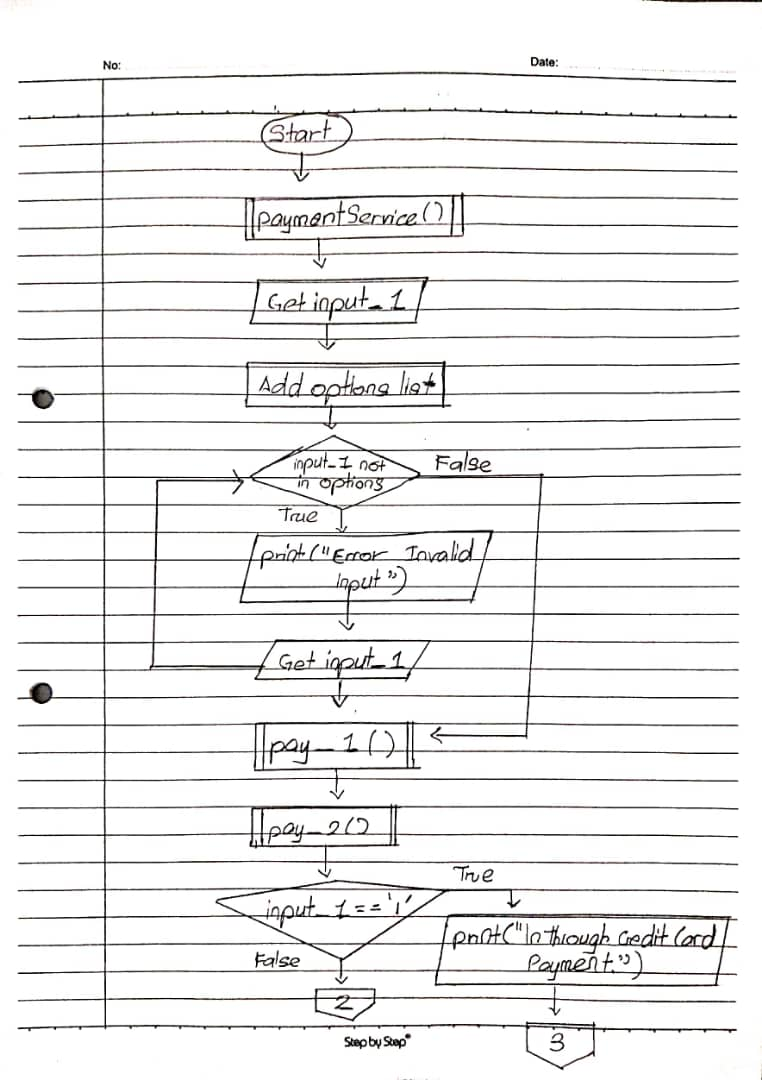 No:
Date:
Start
paymentService()
Get input_1
Add options list
input_1 not
in options
False
True
print("Error Invalid
input")
Get input_1
pay_1()
pay_2()
True
input_1=='1'
print("\n Through Credit Card
Payment.")
False
2
3
Step by Step